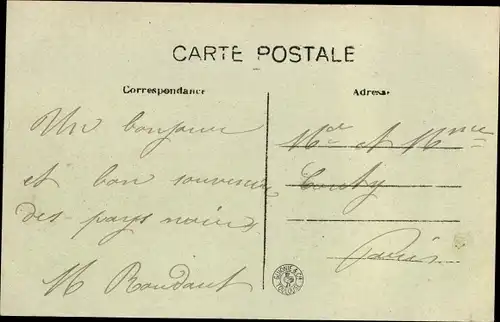 CARTE POSTALE
Correspondance
Adresse
Un bonjour
et bon souvenir
des pays noirs
M et Mme
Paris